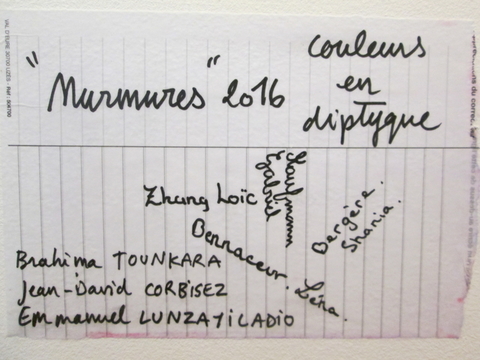 "Murmures" 2016
couleurs
en
diptyque
Zhang Loïc
Kaufmann
Gabriel
Bergère.
Shania.
Bennaceur. Léna.
Brahima TOUNKARA
Jean-David CORBISEZ
Emmanuel LUNZAYiLADIO